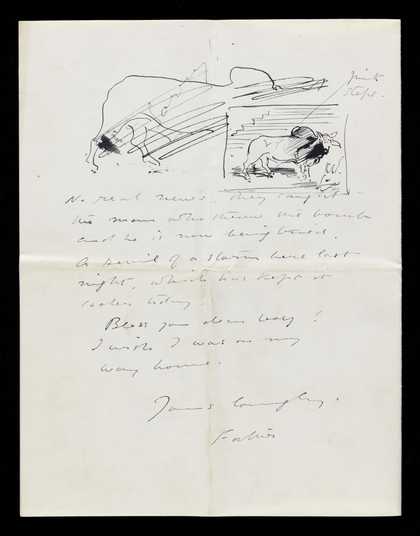 pink
steps.
No real news. They caught
the man who threw the bomb
and he is now being tried.
A devil of a storm here last
night, which has kept it
cooler today
Bless you dear boy!
I wish I was on my
way home.
Yours